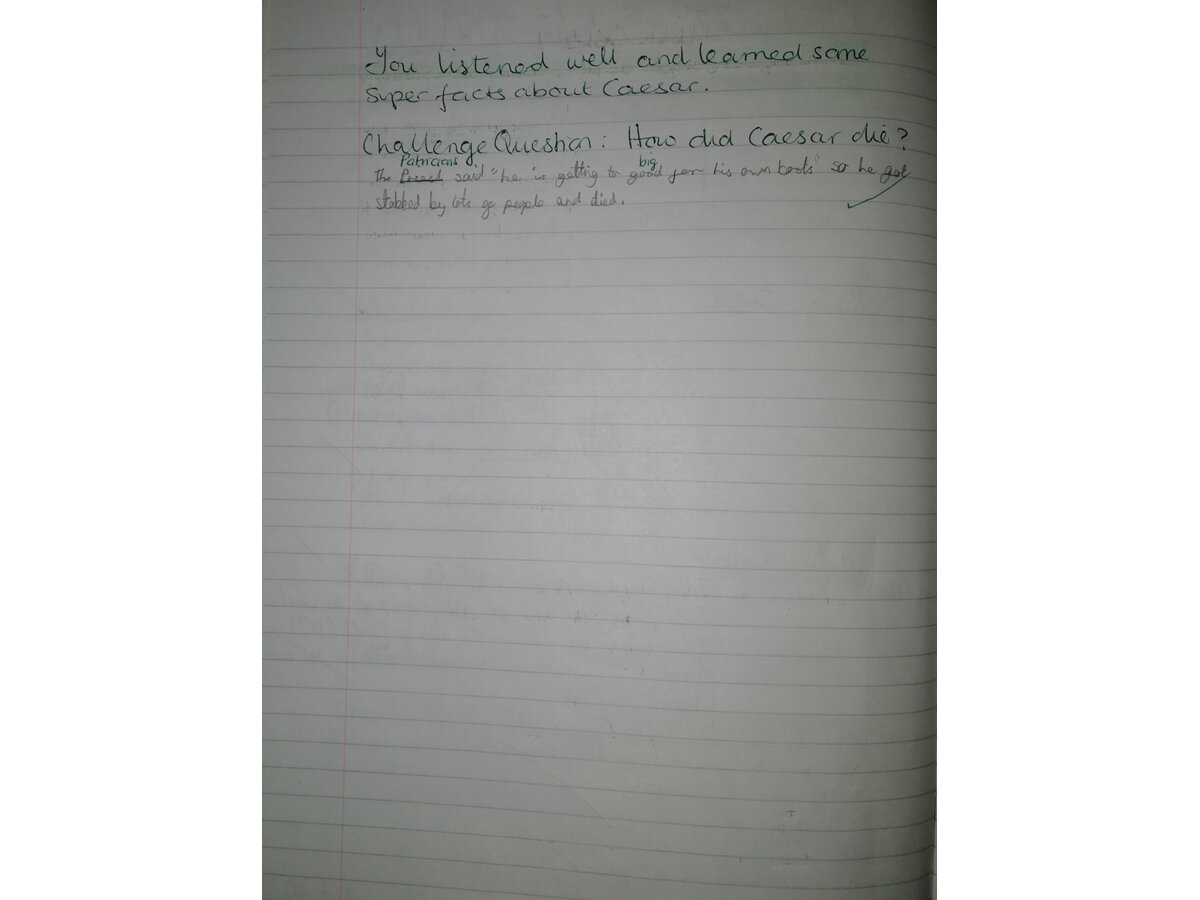 You listened well and learned some
super facts about Caesar.
Challenge Question: How did Caesar die?
Patricians
big
The said "he is getting to good for his own boots" so he got
stabbed by lots of people and died.